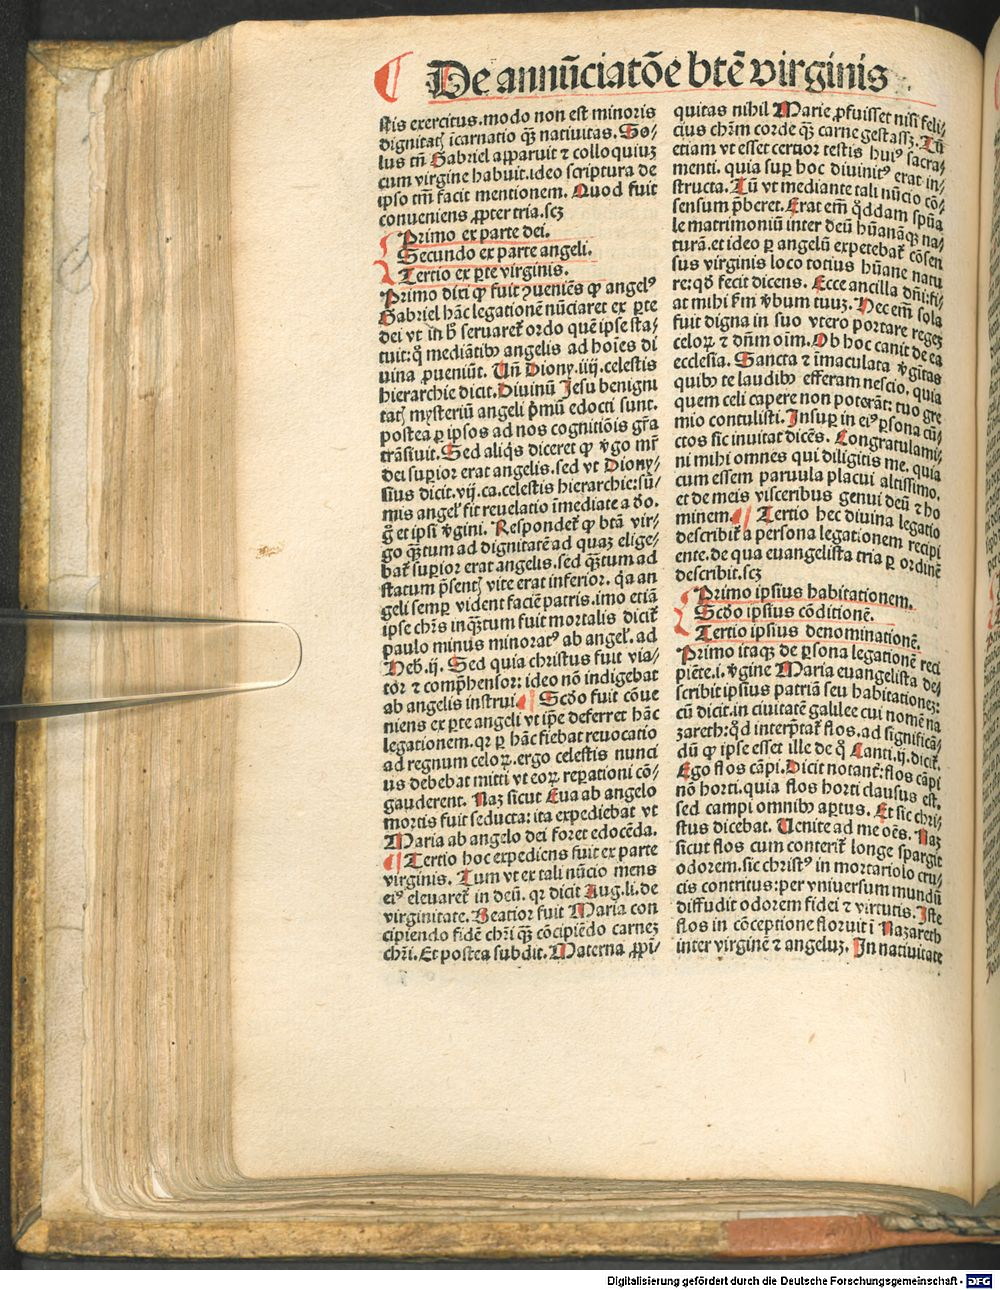 De annūciatōe btē virginis
stis exercitus. modo non est minoris
dignitatꝭ īcarnatio qꝫ natiuitas. So-
lus tn̄ Gabriel apparuit ⁊ colloquiuꝫ
cum virgine habuit. ideo scriptura de
ipso tm̄ facit mentionem. Quod fuit
conueniens ꝓpter tria. scꝫ
Primo ex parte dei.
Secundo ex parte angeli.
Tertio ex ꝑte virginis.
Primo dixi ꝙ fuit ꝯueniēs ꝙ angelꝰ
Gabriel hāc legationē nūciaret ex ꝑte
dei vt in h̄ seruaretꝛ ordo quē ipse sta-
tuit: ꝙ mediātibꝫ angelis ad hoīes di
uina ꝓueniūt. Un̄ Diony. iiij. celestis
hierarchie dicit. Diuinū Jesu benigni
tatꝭ mysteriū angeli pͥmū edocti sunt.
postea ꝑ ipsos ad nos cognitiōis grā
trāsiuit. Sed aliq̇s diceret ꝙ ṽgo mr̄
dei suꝑior erat angelis. sed vt Diony-
sius dicit. vij. ca. celestis hierarchie: sū-
mis angeł fit reuelatio īmediate a deo.
g̊ et ipsi ṽgini. Respondetꝛ ꝙ btā vir-
go qꝫtum ad dignitatē ad quaꝫ elige-
batꝛ suꝑior erat angelis. sed qꝫtum ad
statum p̄sentꝭ vite erat inferior. q̇a an
geli semꝑ vident faciē patris. imo etiā
ipse chr̄s inqꝫtum fuit mortalis dicitꝛ
paulo minus minoratꝰ ab angeł. ad
Heb. ij. Sed quia christus fuit via-
tor ⁊ comp̄hensor: ideo nō indigebat
ab angelis instrui. ¶ Scd̄o fuit cōue
niens ex ꝑte angeli vt ip̄e deferret hāc
legationem. qꝛ ꝑ hāc fiebat reuocatio
ad regnum celoꝝ. ergo celestis nunci
us debebat mitti vt eoꝝ reꝑationi cō-
gauderent. Naꝫ sicut Eua ab angelo
mortis fuit seducta: ita expediebat vt
Maria ab angelo dei foret edocēda.
¶ Tertio hoc expediens fuit ex parte
virginis. Tum vt ex tali nūcio mens
eiꝰ eleuaretꝛ in deū. qꝛ dicit Aug. li. de
virginitate. Beatior fuit Maria con
cipiendo fidē chr̄i qꝫ cōcipiēdo carneꝫ
chr̄i. Et postea subdit. Materna ꝓpi-
quitas nihil Marie ꝓfuisset nisi feli-
cius chr̄m corde qꝫ carne gestassꝫ. Tū
etiam vt esset certior testis huiꝰ sacra-
menti. quia suꝑ hoc diuinitꝰ erat in-
structa. Tū vt mediante tali nūcio cō-
sensum p̄beret. Erat em̄ q̇ddam spūa
le matrimoniū inter deū hūanāqꝫ na-
turā. et ideo ꝑ angelū expetebatꝛ cōsen
sus virginis loco totius hūane natu
re: qd̓ fecit dicens. Ecce ancilla dn̄i: fi-
at mihi ẜm ṽbum tuuꝫ. Nec em̄ sola
fuit digna in suo vtero portare regeꝫ
celoꝝ ⁊ dn̄m oīm. Ob hoc canit de ea
ecclesia. Sancta ⁊ īmaculata ṽgītas
quibꝫ te laudibꝫ efferam nescio. quia
quem celi capere non poterāt: tuo gre
mio contulisti. Insuꝑ in eiꝰ ꝑsona cū-
ctos sic inuitat dicēs. Congratulami-
ni mihi omnes qui diligitis me. quia
cum essem paruula placui altissimo.
et de meis visceribus genui deū ⁊ ho
minem. ¶ Tertio hec diuina legatio
describitꝛ a persona legationem recipi
ente. de qua euangelista tria ꝑ ordinē
describit. scꝫ
Primo ipsius habitationem.
Scd̄o ipsius cōditionē.
Tertio ipsius denominationē.
Primo itaqꝫ de ꝑsona legationē reci
piēte. i. ṽgine Maria euangelista de-
scribit ipsius patriā seu habitationeꝫ:
cū dicit. in ciuitatē galilee cui nomē na
zareth: qd̓ interp̄tatꝛ flos. ad significā-
dū ꝙ ipse esset ille de q̊ Canti. ij. dicitꝛ.
Ego flos cāpi. Dicit notantꝛ: flos cāpi
nō horti. quia flos horti clausus est.
sed campi omnibꝫ aꝑtus. Et sic chri-
stus dicebat. Uenite ad me oēs. Naꝫ
sicut flos cum conteritꝛ longe spargit
odorem. sic christꝰ in mortariolo cru-
cis contritus: per vniuersum mundū
diffudit odorem fidei ⁊ virtutis. Iste
flos in cōceptione floruit ī Nazareth
inter virginē ⁊ angeluꝫ. In natiuitate
Digitalisierung gefördert durch die Deutsche Forschungsgemeinschaft - DFG